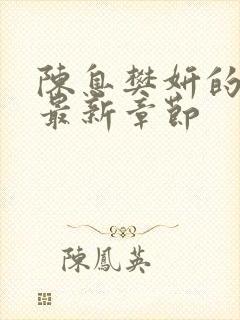 陳息樊妍的
最新章節
陳鳳英